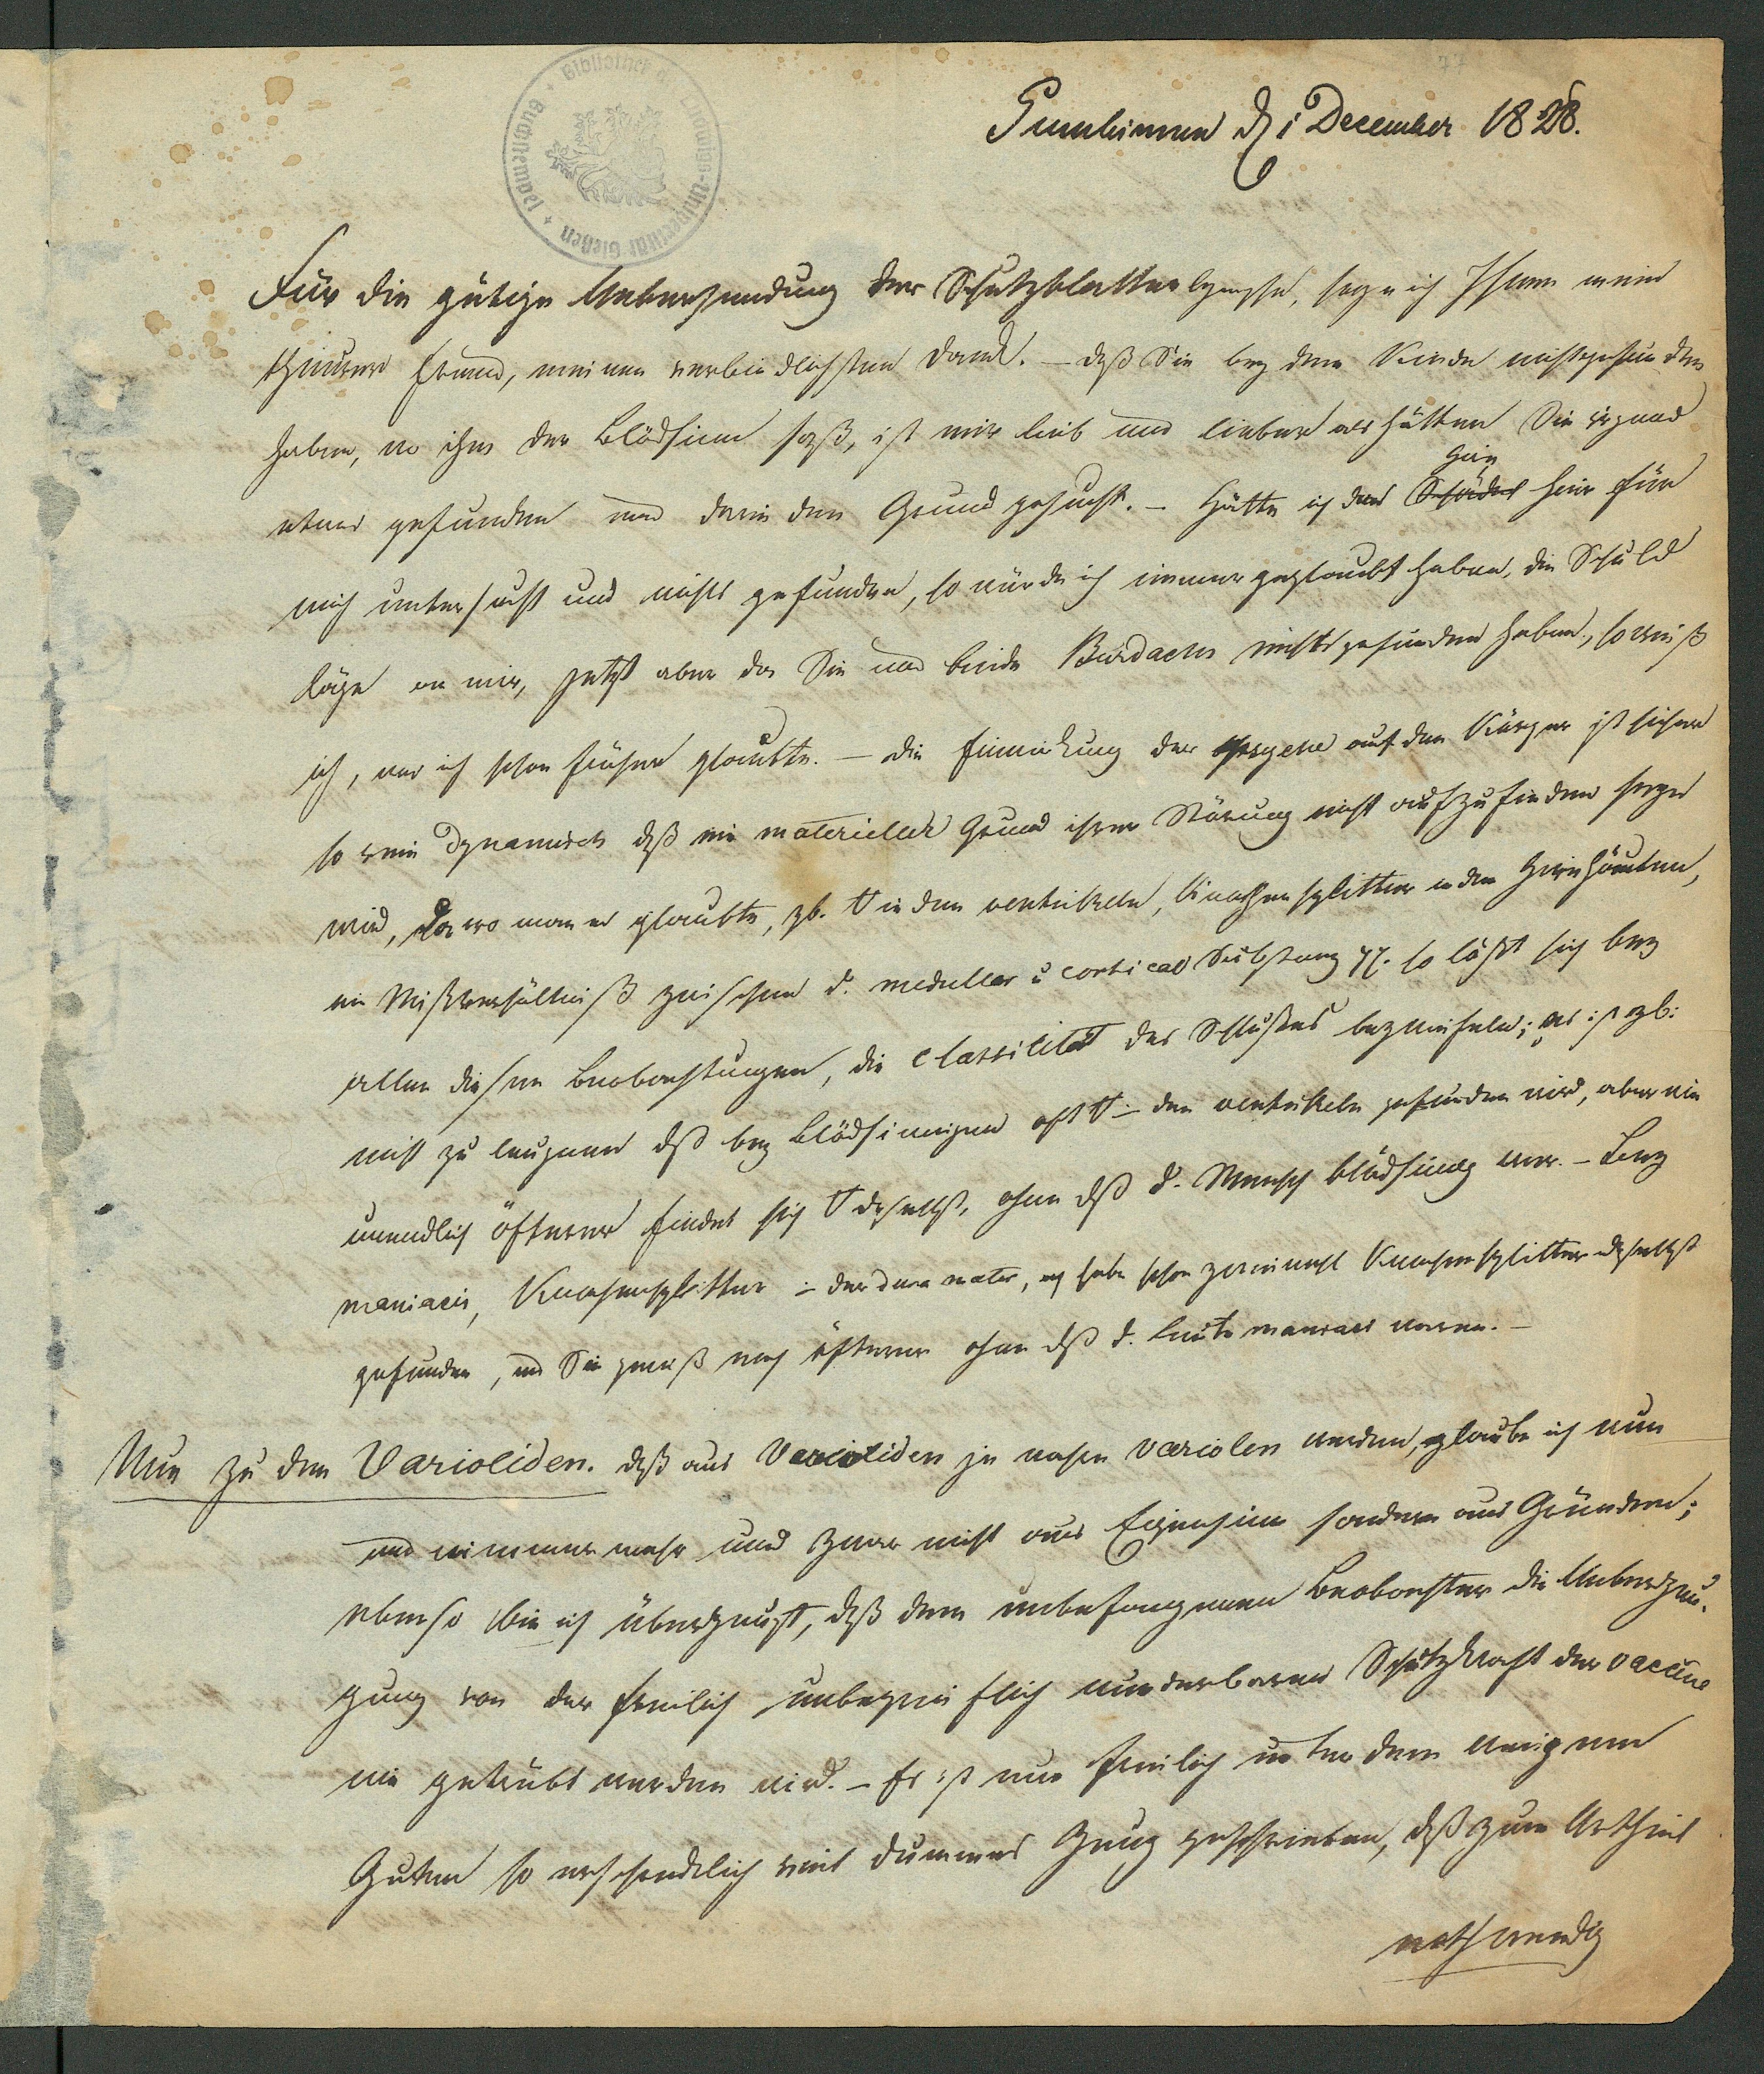 Gumbinnen d 1 December 1828.
Für die gütige Uebersendung der Schutzblatterlymphe, sage ich Ihnen mein
theurer Freund, meinen verbindlichsten Dank. – daß Sie bey dem Kinde nicht gefunden
haben, wo ihm der Blödsinn saß, ist mir lieb und lieber als hätten Sie irgend
etwas gefunden und darin den Grund gesucht. – Hätte ich das Hirn hier für
mich untersucht und nichts gefunden, so würde ich immer geglaubt haben, die Schuld
läge an mir, jetzt aber da Sie und beide Burdachs nichts gefunden haben, so weiß
ich, was ich schon früher glaubte. – die Einwirkung der psyche auf den Körper ist sicher
so rein dynamisch daß ein materieller Grund ihrer Störung nicht aufzufinden seyn
wird, da wo man es glaubte, zb. in den ventrikeln, Knochensplitter in den Hirnhäuten,
ein Mißverhältniß zwischen d. medullar u cortical Substanz so läßt sich bey
allen diesen Beobachtungen, die des Schlußes bezweifeln; es ist zb:
nicht zu leugnen dß bey Blödsinnigen oft in den ventrikeln gefunden wird, aber wie
unendlich öfterer findet sich daselbst, ohne dß d. Mensch blödsinnig war. – Bey
maniacis, Knochensplitter in der dura mater, ich habe schon zweimal Knochensplitter daselbst
gefunden, und Sie gewiß noch öfterer ohne dß d. Leute maniaci waren. –
Nun zu den Varioliden. daß aus Varioliden je wahre variolen werden, glaube ich nun
und nimmermehr und zwar nicht aus Eigensinn sondern aus Gründen;
ebenso bin ich überzeugt, daß dem unbefangenen Beobachter die Ueberzeu-
gung von der freilich unbegreiflich wunderbaren Schutzkraft der vaccine
nie getrübt werden wird. – Es ist nun freilich unter dem wenigen
Guten so erschrecklich viel dummes Zeug geschrieben, daß zum Urtheil
nothwendig
Bibliothek d. Ludwigs-Universität Gießen